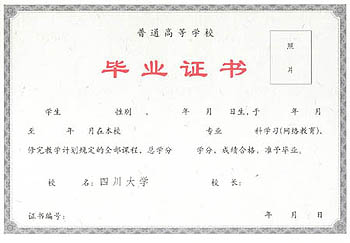 普通高等学校
毕业证书
照
片
学生 性别 , 年 月 日生,于 年 月
至 年 月在本校 专业 科学习(网络教育),
修完教学计划规定的全部课程,总学分 学分,成绩合格,准予毕业。
校 名:四川大学 校 长:
证书编号: 年 月 日